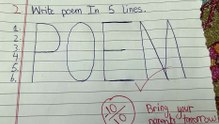 2. Write poem In 5 lines.
1.
2.
3.
4.
5.
6.
POEM
-10/10
Bring your
parents tomorrow